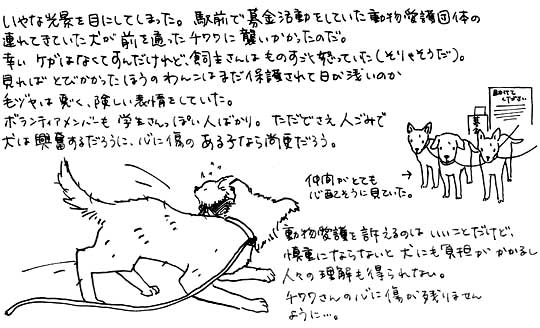 いやな光景を目にしてしまった。駅前で募金活動をしていた動物愛護団体の
連れてきていた犬が前を通ったチワワに襲いかかったのだ。
幸いケガはなくてすんだけれど、飼主さんはものすごく怒っていた(そりゃそうだ)。
見ればとびかかったほうのわんこはまだ保護されて日が浅いのか
毛ヅヤは悪く、険しい表情をしていた。
ボランティアメンバーも学生さんっぽい人ばかり。ただでさえ人ごみで
犬は興奮するだろうに、心に傷のある子なら尚更だろう。
助けて
ください
募金
仲間がとても
心配そうに見ていた。
→
動物愛護を訴えるのはいいことだけど、
慎重にならないと犬にも負担がかかるし
人々の理解も得られない。
チワワさんの心に傷が残りません
ように…。